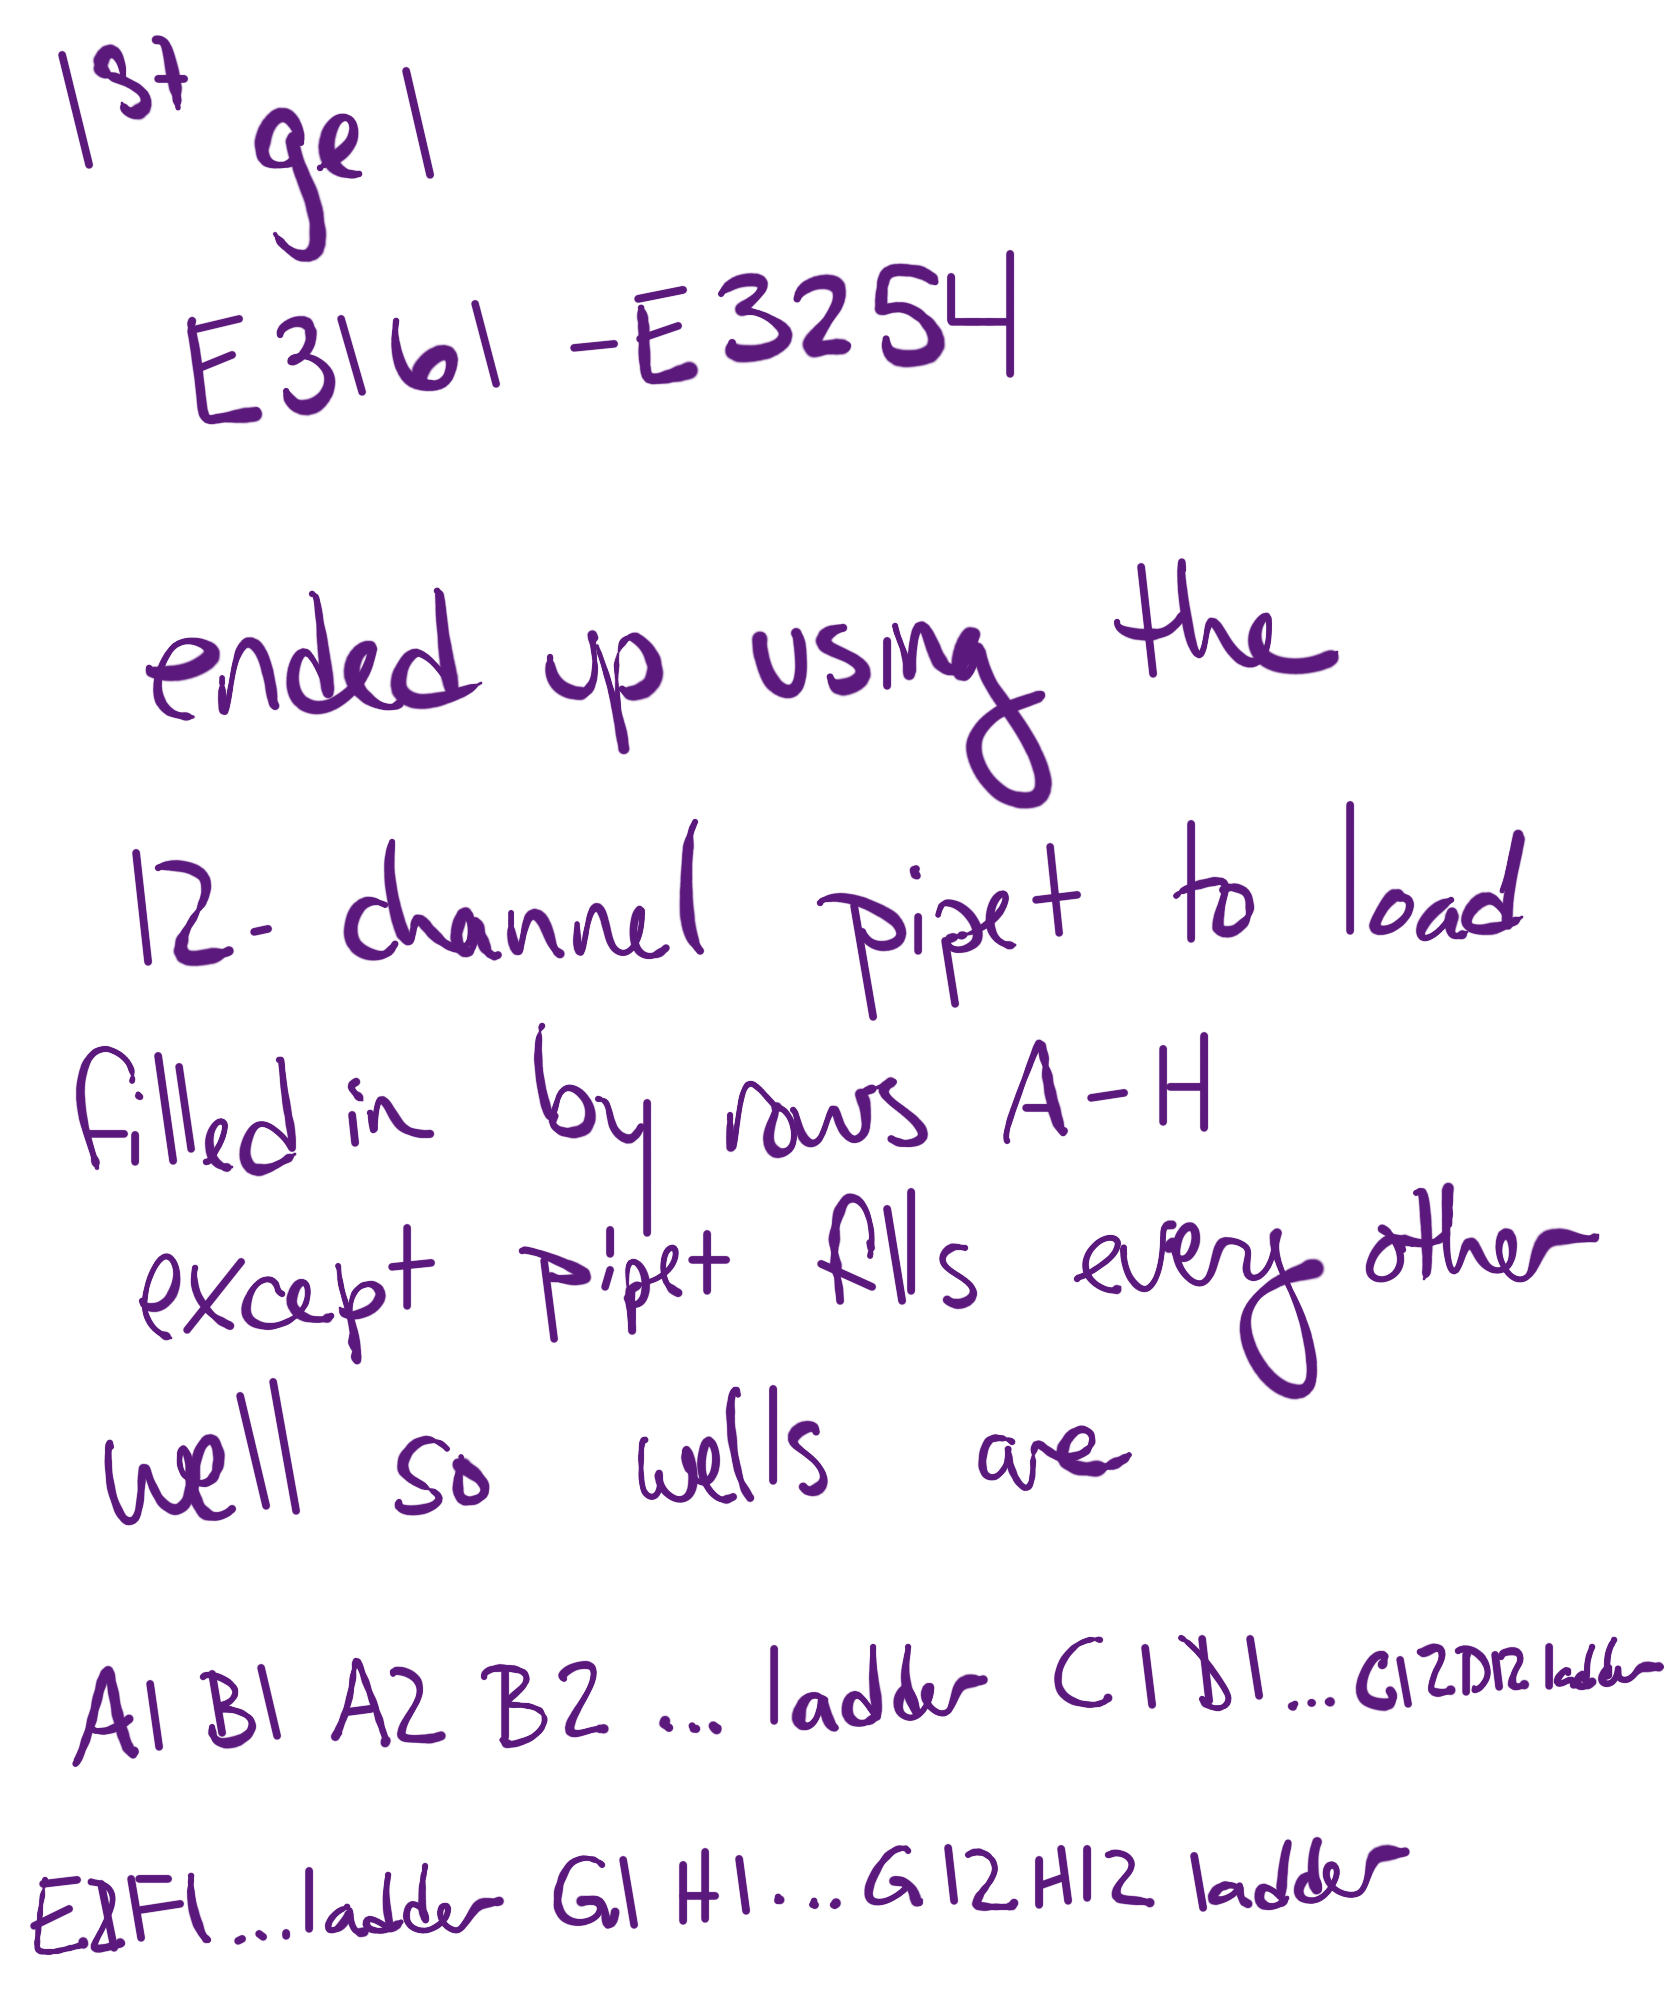 1st gel
E3161 - E3254
ended up using the
12-channel pipet to load
filled in by rows A-H
except pipet fills every other
well so wells are
A1 B1 A2 B2 ... ladder C1 D1 ... C12 D12 ladder
E1 F1 ... ladder G1 H1 ... G12 H12 ladder